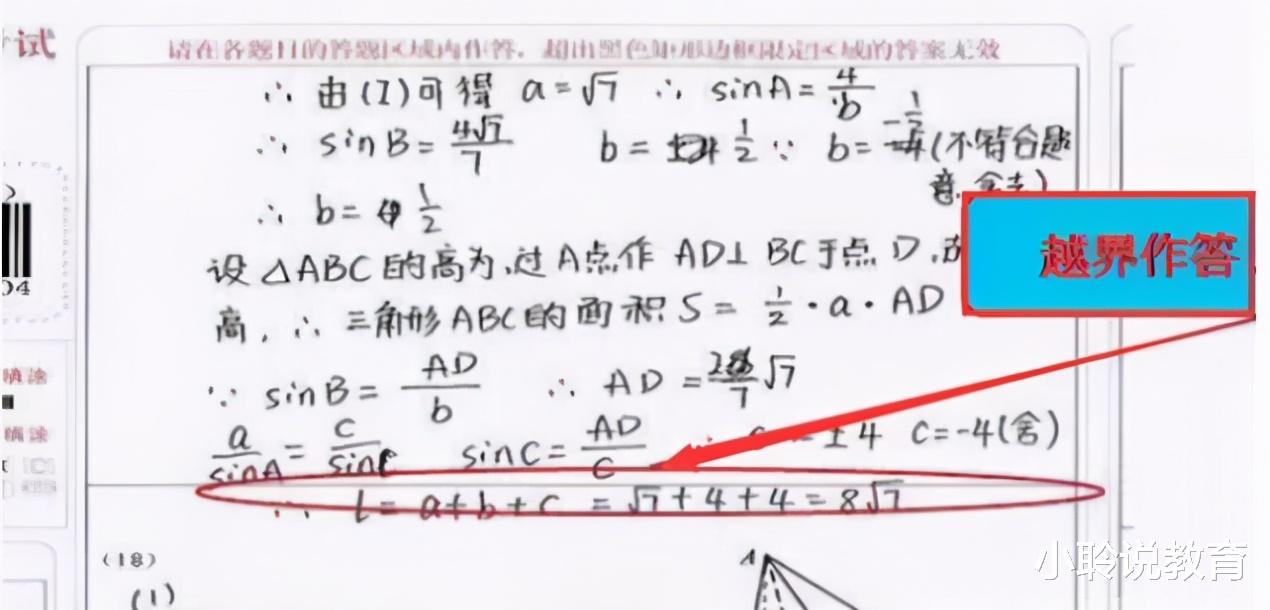 试
请在各题目的答题区域内作答，超出黑色矩形边框限定区域的答案无效
∴ 由(I)可得 a=√7 ∴ sinA=4/b
∴ sinB=4√7/7 b= 1/2 ∵ b=-1/2 (不符合题
意,舍去)
∴ b= 1/2
设△ABC的高为,过A点作 AD⊥BC于点D,
越界作答
高,∴ 三角形ABC的面积S=1/2·a·AD
∵ sinB=AD/b ∴ AD= /7 √7
填涂
填涂
a/sinA=c/sinC sinC=AD/C ±4 C=-4(舍)
∴ l=a+b+c=√7+4+4=8√7
04
(18)
A
(1)
小聆说教育